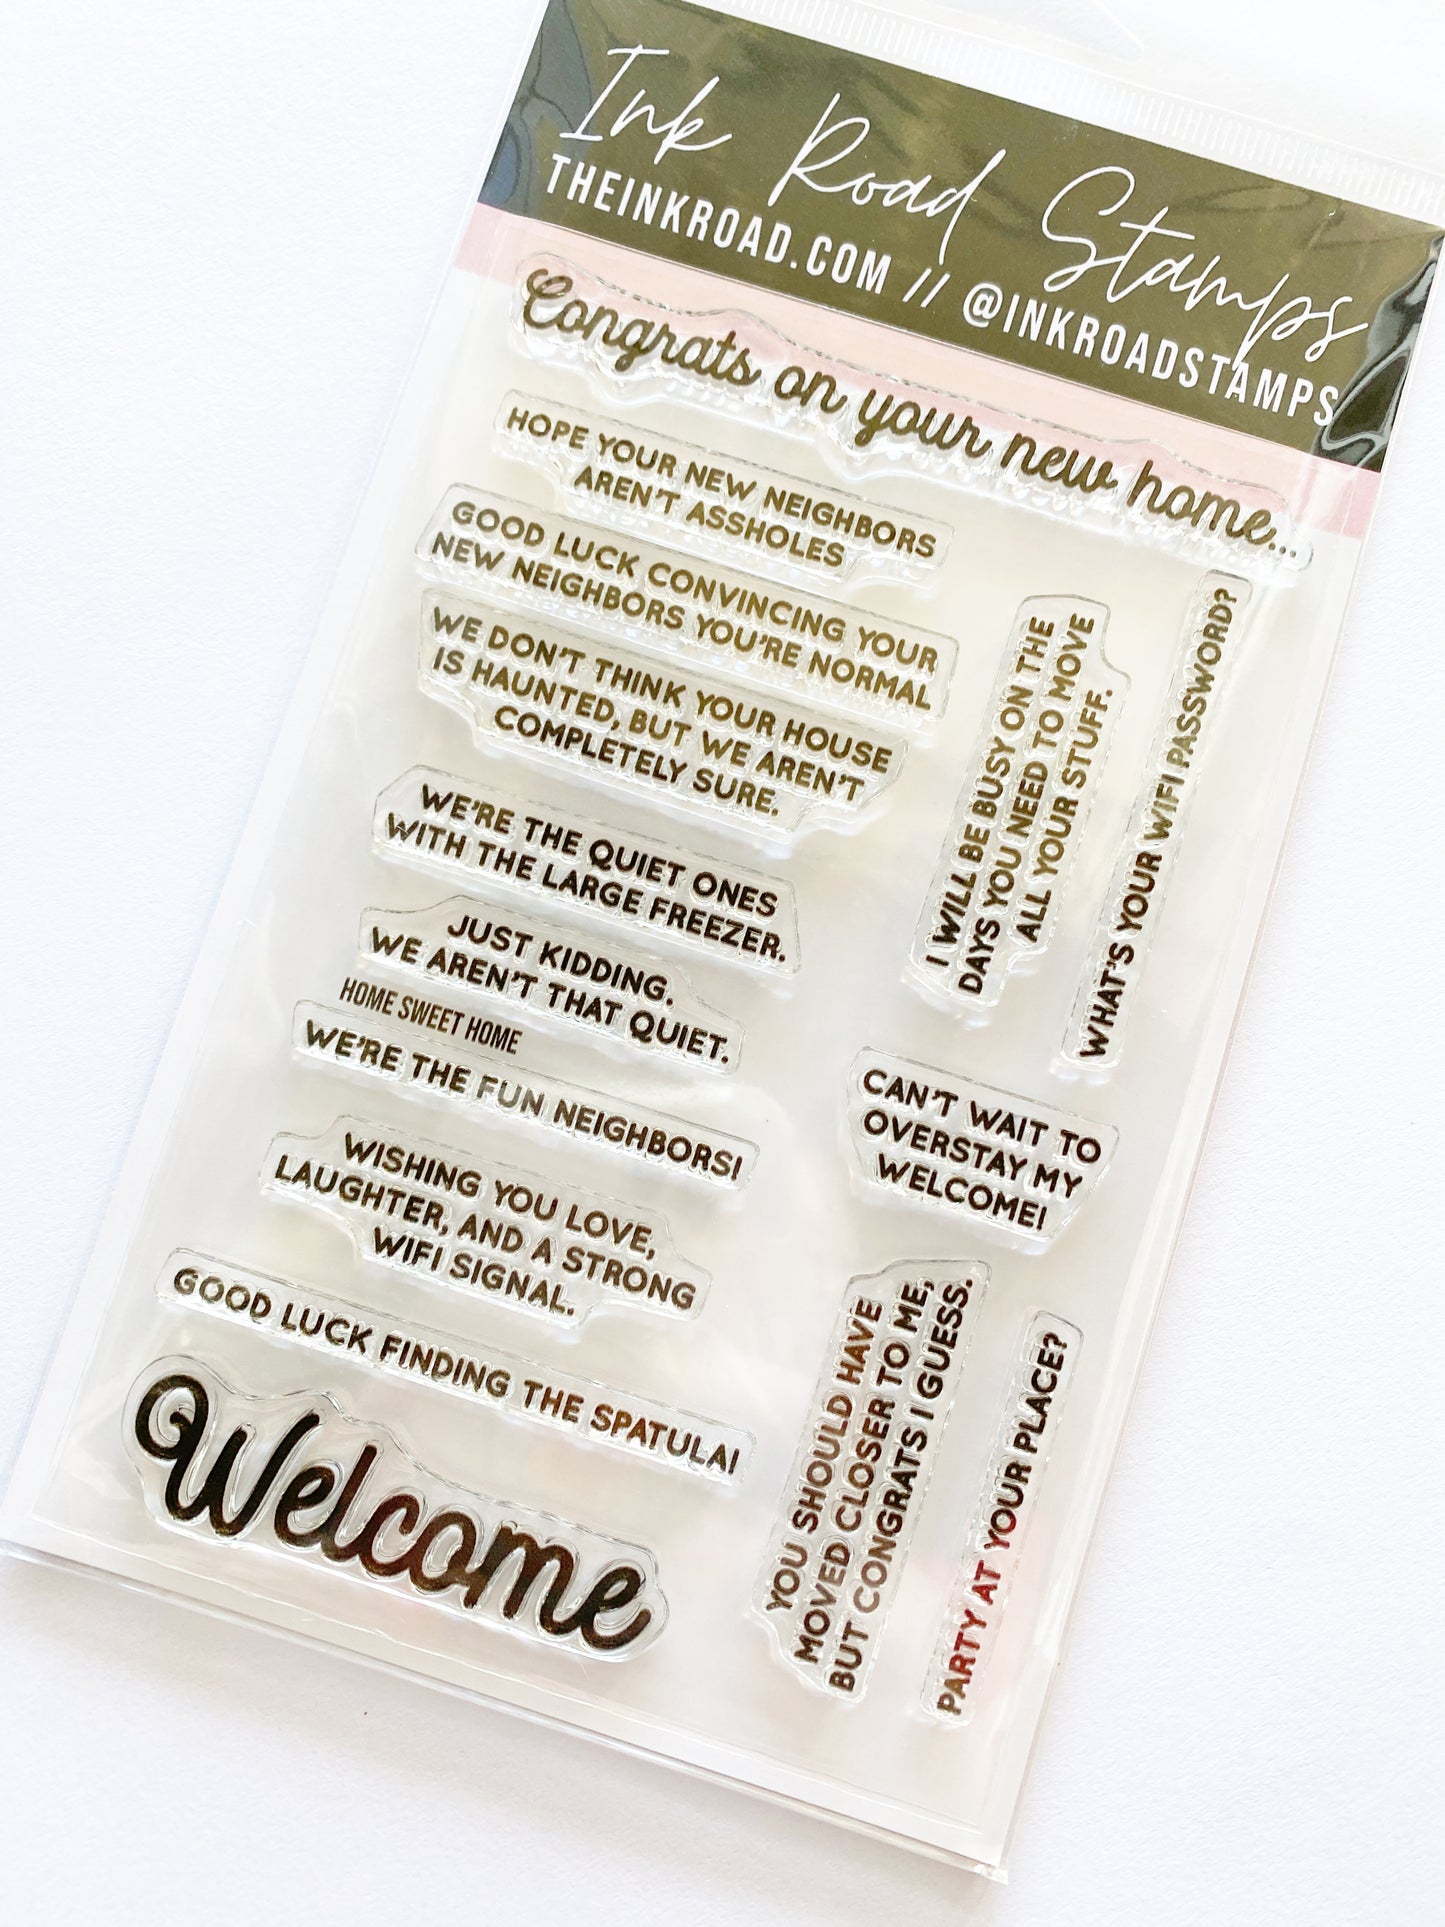 Ink Road Stamps
THEINKROAD.COM // @INKROADSTAMPS
Congrats on your new home...
HOPE YOUR NEW NEIGHBORS
AREN'T ASSHOLES
GOOD LUCK CONVINCING YOUR
NEW NEIGHBORS YOU'RE NORMAL
WE DON'T THINK YOUR HOUSE
IS HAUNTED, BUT WE AREN'T
COMPLETELY SURE.
WE'RE THE QUIET ONES
WITH THE LARGE FREEZER.
JUST KIDDING.
WE AREN'T THAT QUIET.
HOME SWEET HOME
WE'RE THE FUN NEIGHBORS!
WISHING YOU LOVE,
LAUGHTER, AND A STRONG
WIFI SIGNAL.
GOOD LUCK FINDING THE SPATULA!
Welcome
I WILL BE BUSY ON THE
DAYS YOU NEED TO MOVE
ALL YOUR STUFF.
WHAT'S YOUR WIFI PASSWORD?
CAN'T WAIT TO
OVERSTAY MY
WELCOME!
YOU SHOULD HAVE
MOVED CLOSER TO ME,
BUT CONGRATS I GUESS.
PARTY AT YOUR PLACE?